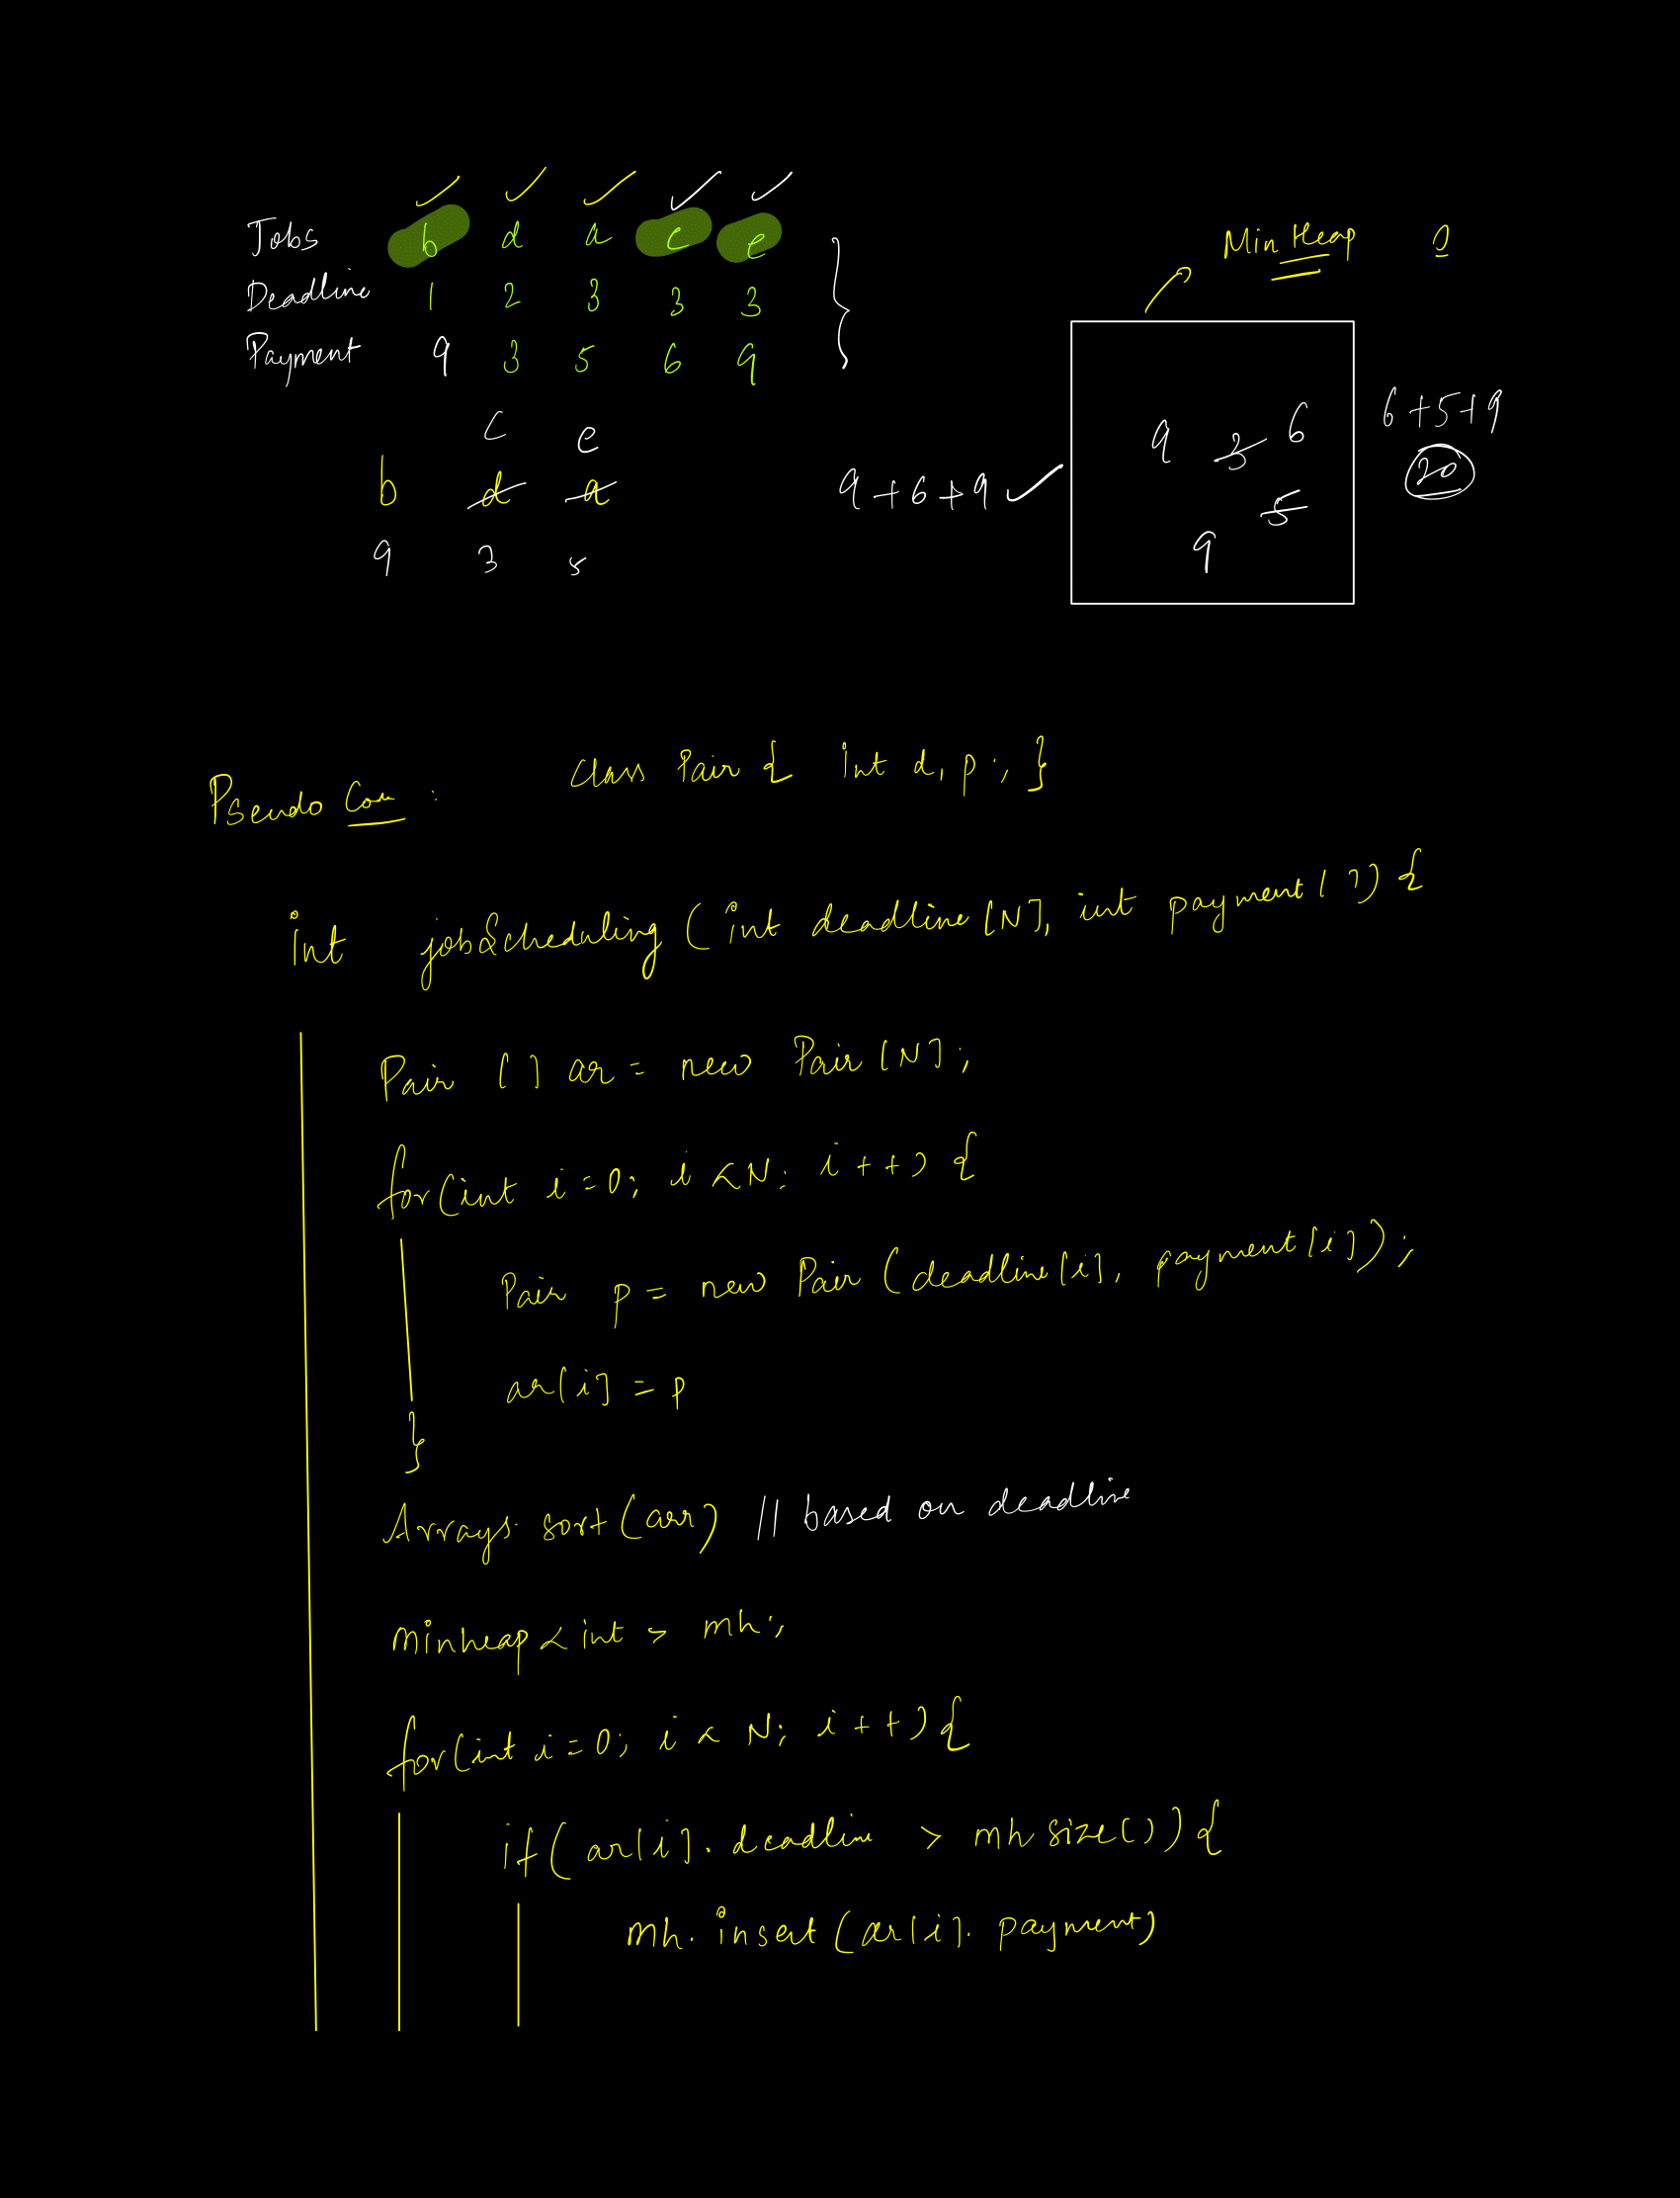 Jobs b d a c e
Deadline 1 2 3 3 3
Payment 9 3 5 6 9
Min Heap
c e
b d a
9 3 5
9+6+9
9 3 6
5
9
6+5+9
20
Pseudo
class Pair { int d, p ; }
int jobScheduling (int deadline[N], int payment[ ]) {
Pair [ ] ar = new Pair [N];
for(int i=0; i<N; i++) {
Pair p = new Pair (deadline[i], payment[i]);
ar[i] = p
}
Arrays. sort(arr) // based on deadline
minheap<int> mh;
for(int i=0; i<N; i++){
if(ar[i]. deadline > mh size()){
mh. insert (ar[i]. payment)